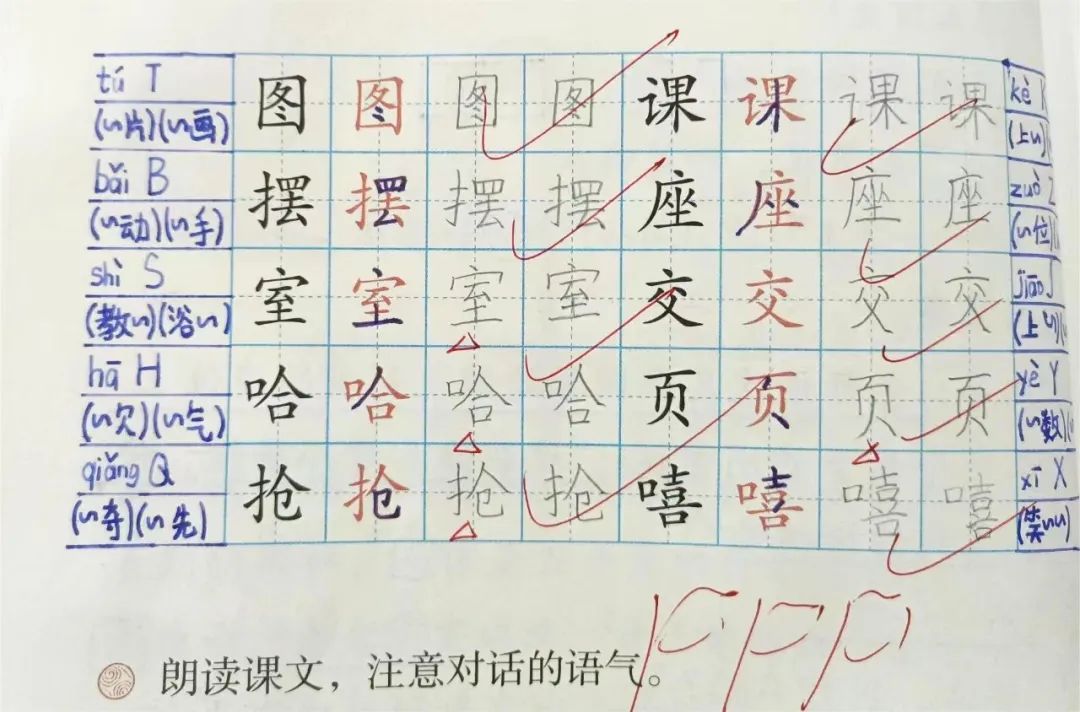 tú T 图 图 图 图 课 课 课 课 kè
(〃片)(〃画) (上〃)
bǎi B 摆 摆 摆 摆 座 座 座 座 zuò Z
(〃动)(〃手) (〃位)
shì S 室 室 室 室 交 交 交 交 jiāo J
(教〃)(浴〃) (上〃)
hā H 哈 哈 哈 哈 页 页 页 页 yè Y
(〃欠)(〃气) (〃数)
qiǎng Q 抢 抢 抢 抢 嘻 嘻 嘻 嘻 xī X
(〃夺)(〃先) (笑〃〃)
朗读课文，注意对话的语气。